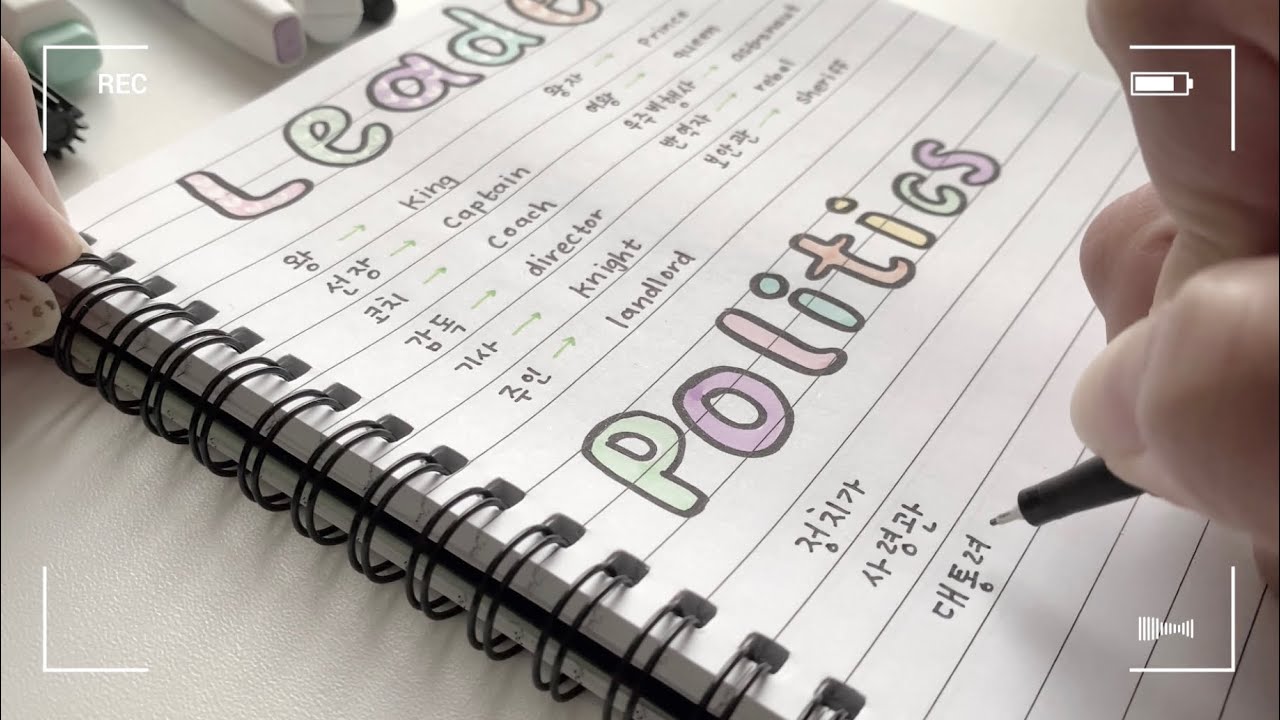 REC
Leade
왕 → king
선장 → captain
코치 → coach
감독 → director
기사 → knight
주인 → landlord
왕자 → prince
여왕 → queen
우주비행사 →
반역자 → rebel
보안관 → sheriff
Politics
정치가
사령관
대통려